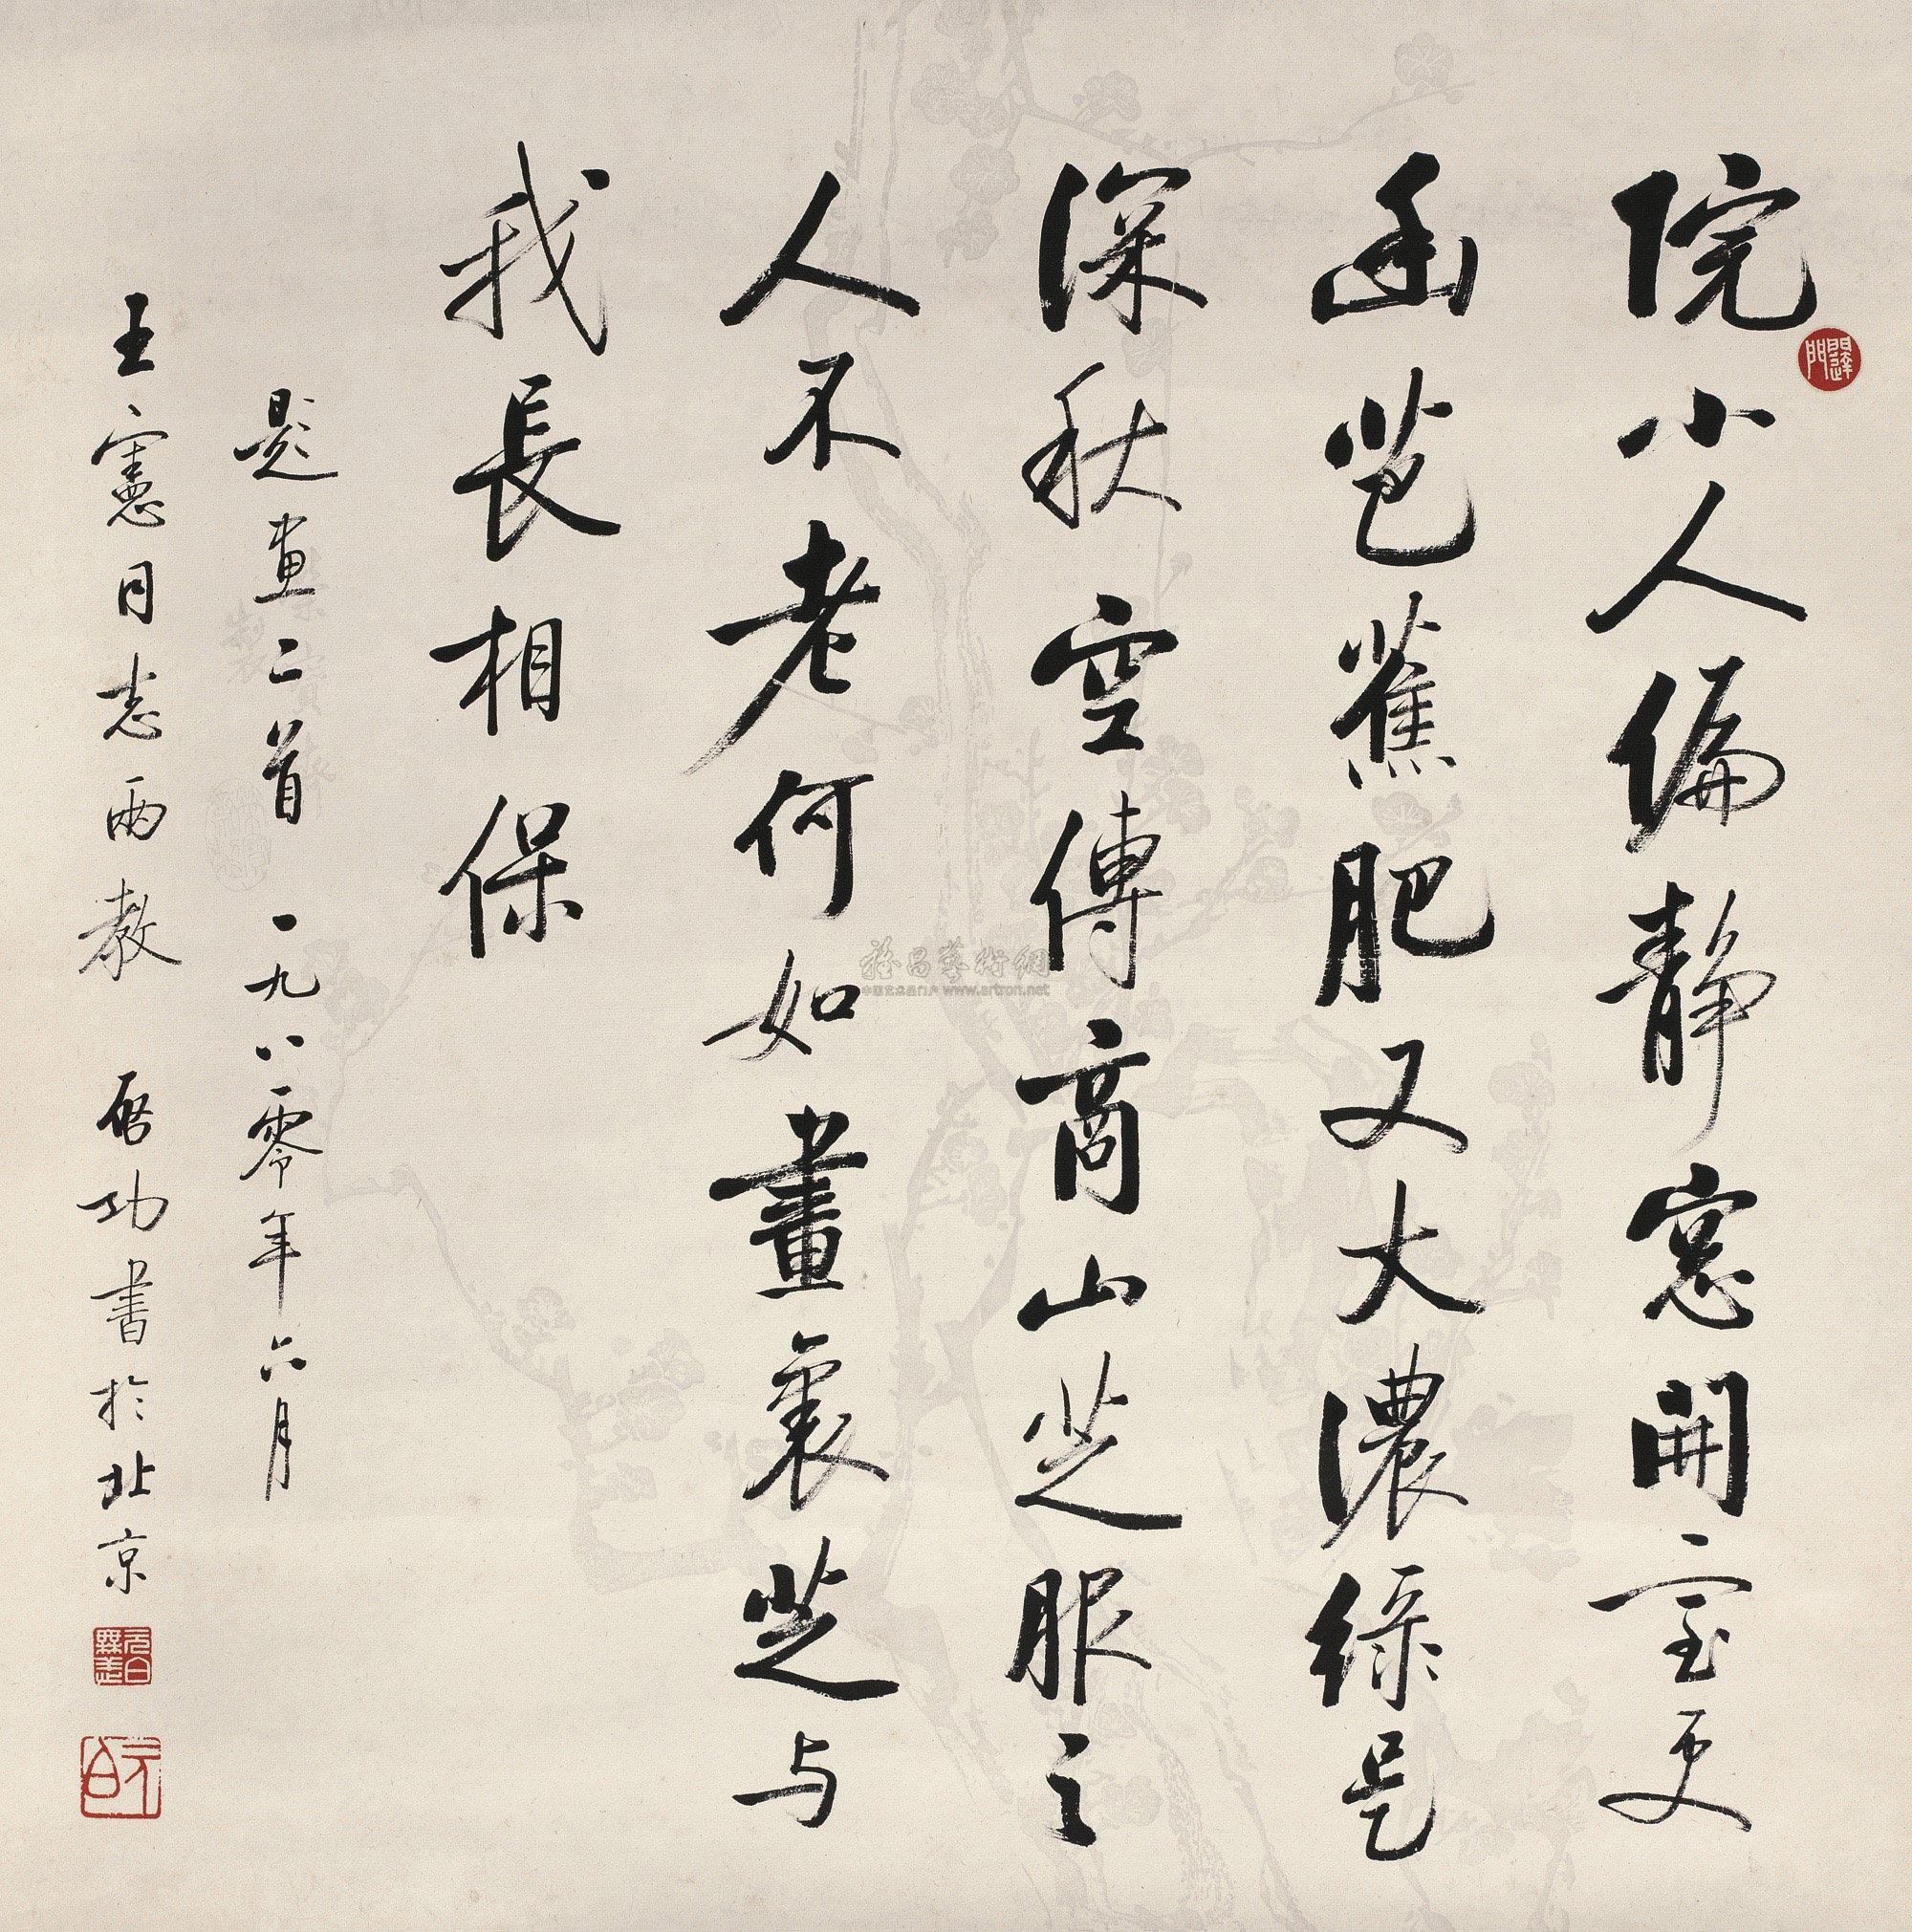 院小人偏靜窓開室更
幽芭蕉肥又大濃綠是
深秋空傳商山芝服之
人不老何如畫裏芝与
我長相保
題畫二首 一九八零年六月
王憲同志两教 啓功書於北京
元白
無恙
元白
www.artron.net